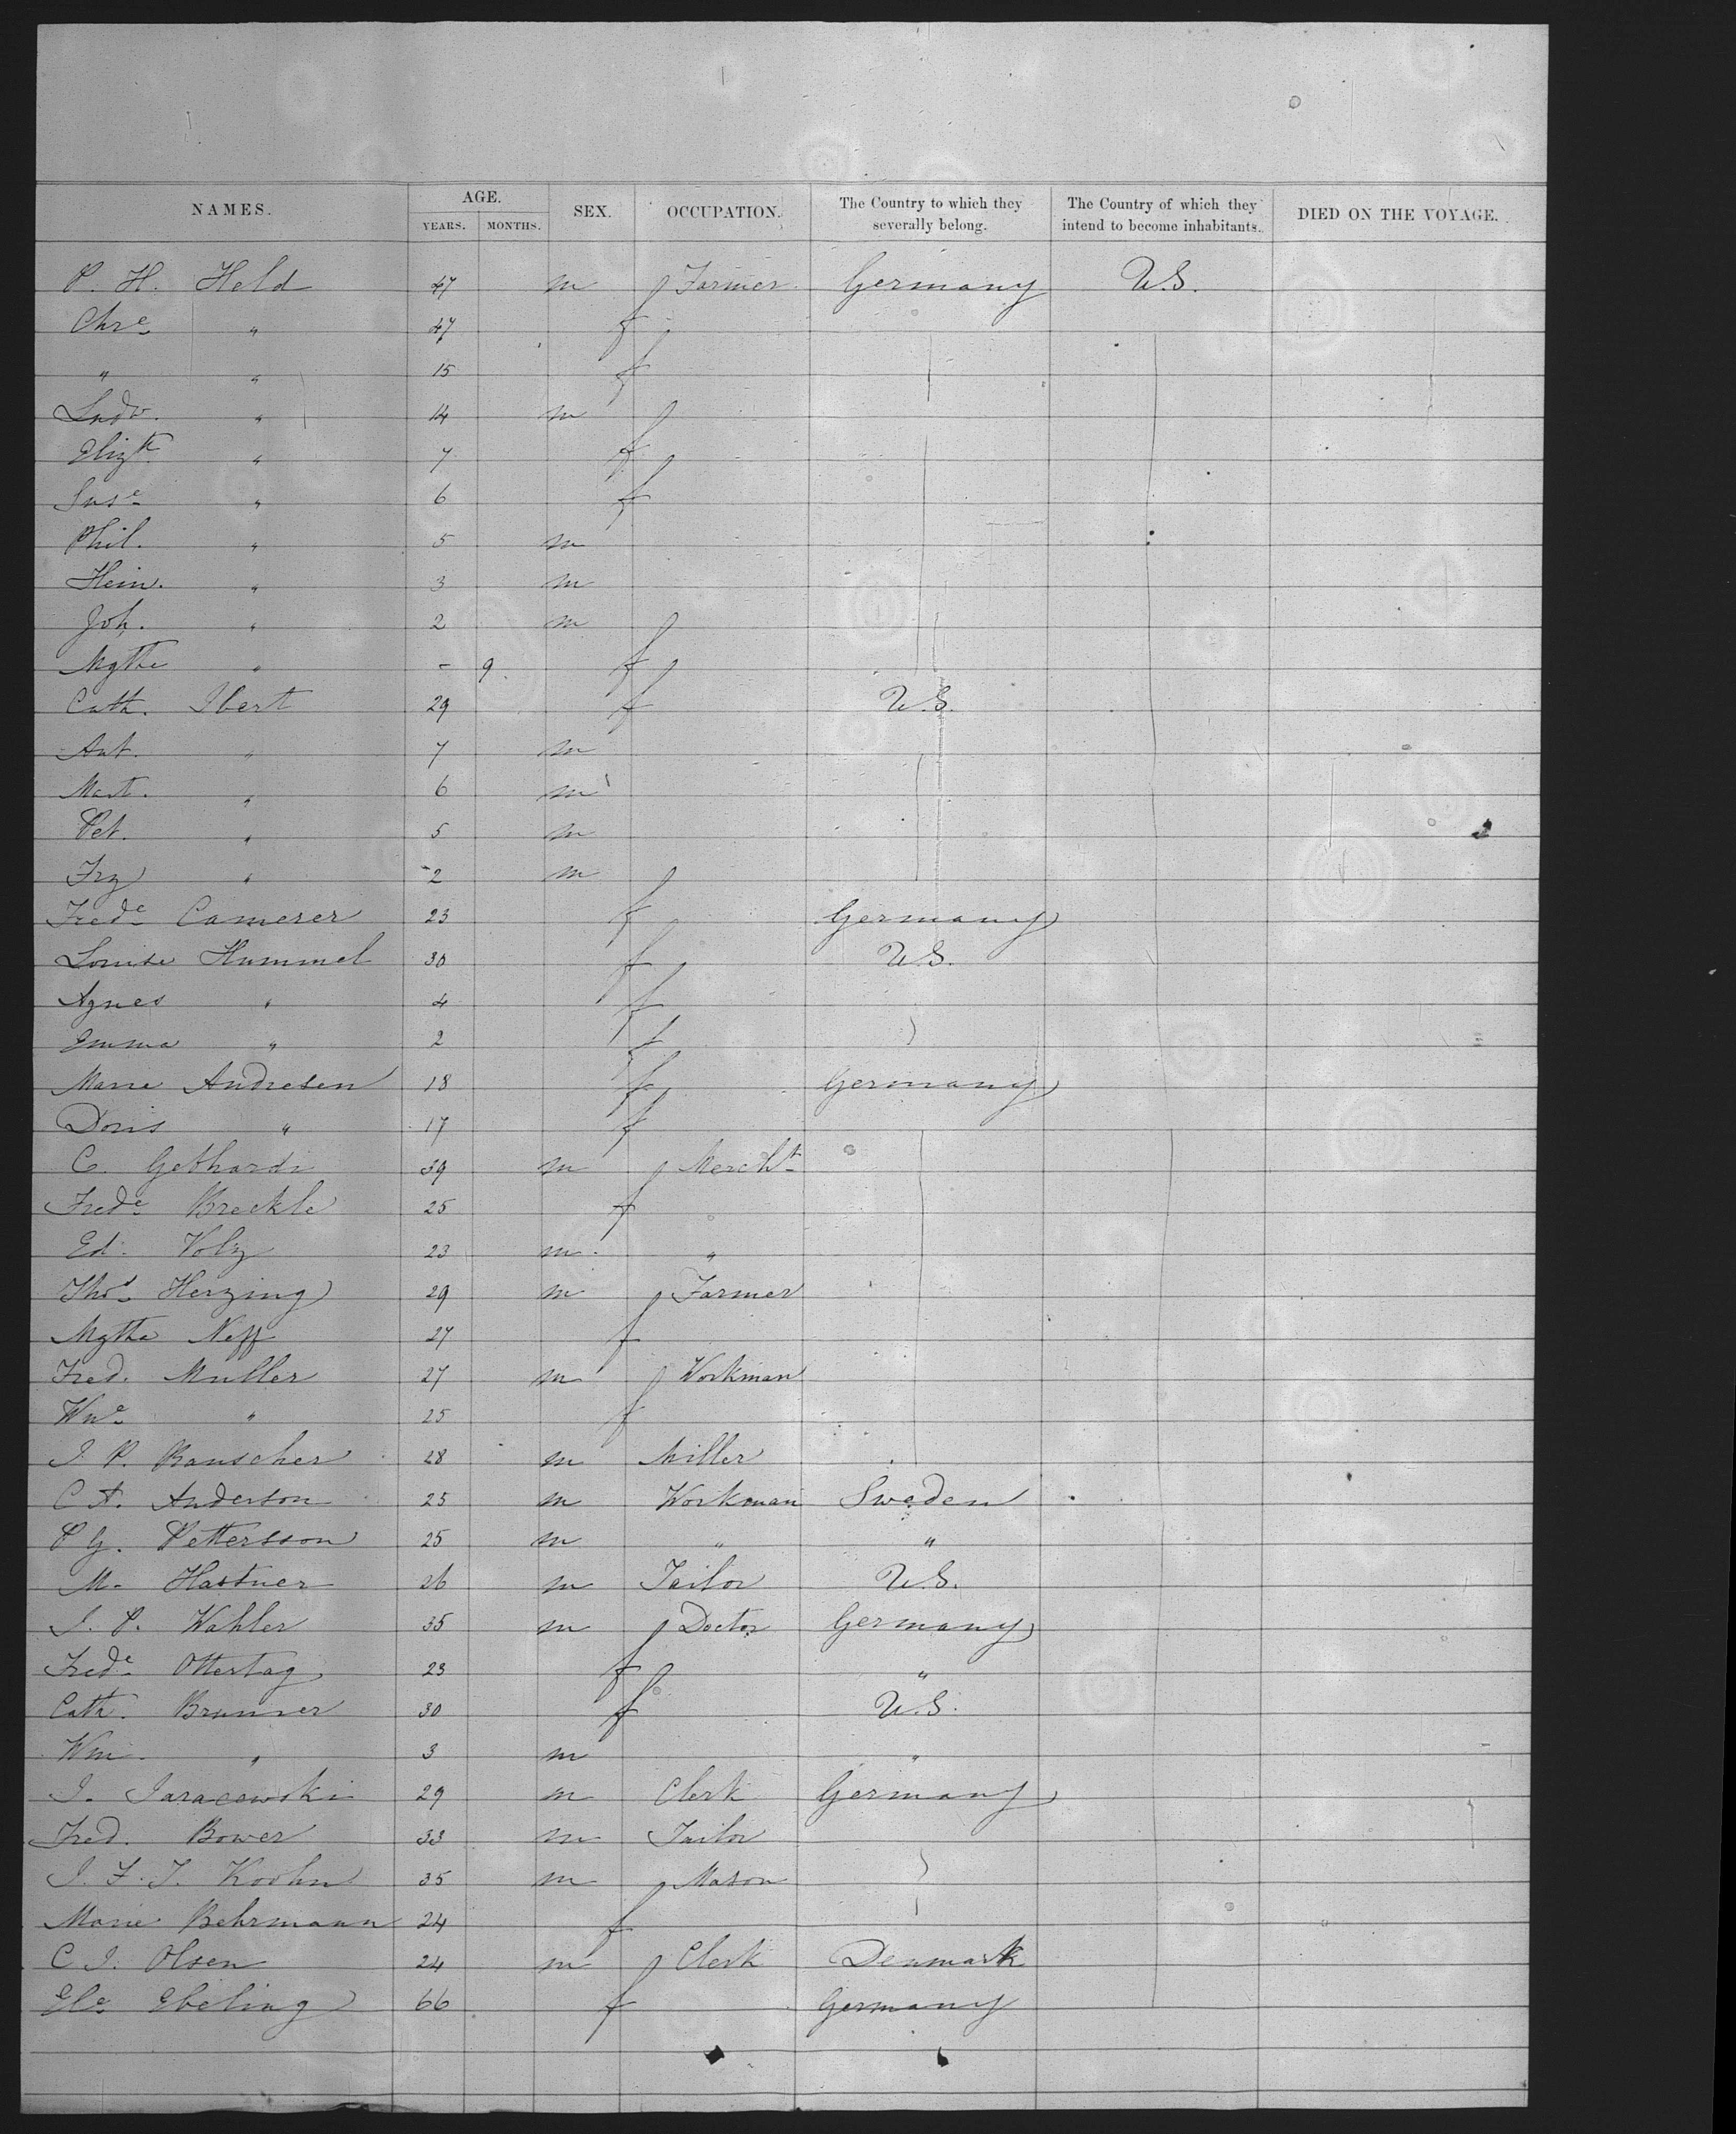 NAMES. AGE. SEX. OCCUPATION. The Country to which they severally belong. The Country of which they intend to become inhabitants. DIED ON THE VOYAGE.
YEARS. MONTHS.
P. H. Held 47 m Farmer Germany U.S.
Chre " 47 f
" " 15 f
Ludw. " 14 m
Elizth " 7 f
Suse " 6 f
Phil. " 5 m
Hein. " 3 m
Joh. " 2 m
Mgthe " - 9 f
Cath. Ibert 29 f U.S.
Ant. " 7 m
Mart. " 6 m
Pet. " 5 m
Frz " 2 m
Frede Camerer 23 f Germany
Louise Hummel 30 f U.S.
Agnes " 4 f
Emma " 2 f
Marie Andresen 18 f Germany
Doris " 17 f
C. Gebhardi 39 m Mercht
Frede Breckle 25 f
Ed. Volz 23 m "
Thos Herzing 29 m Farmer
Mgthe Neff 27 f
Fred. Muller 27 m Workman
Wne " 25 f
J. P. Rauscher 28 m Miller
C A. Anderson 25 m Workman Sweden
P G. Pettersson 25 m " "
M. Hastner 26 m Tailor U.S.
J. P. Wahler 35 m Doctor Germany
Frede Ottertag 23 f "
Cath. Brunner 30 f U.S.
Wm. " 3 m "
J. Jaracewski 29 m Clerk Germany
Fred. Bower 33 m Tailor
J. F. J. Koohn 35 m Mason
Marie Behrmann 24 f
C J. Olsen 24 m Clerk Denmark
Ele Ebeling 66 f Germany